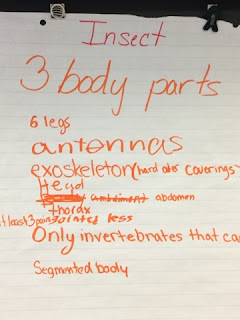 Insect
3 body parts
6 legs
antennas
exoskeleton (hard outer coverings
Head
abdomen
thorax
at least 3 pairs jointed less
Only invertebrates that ca
Segmented body